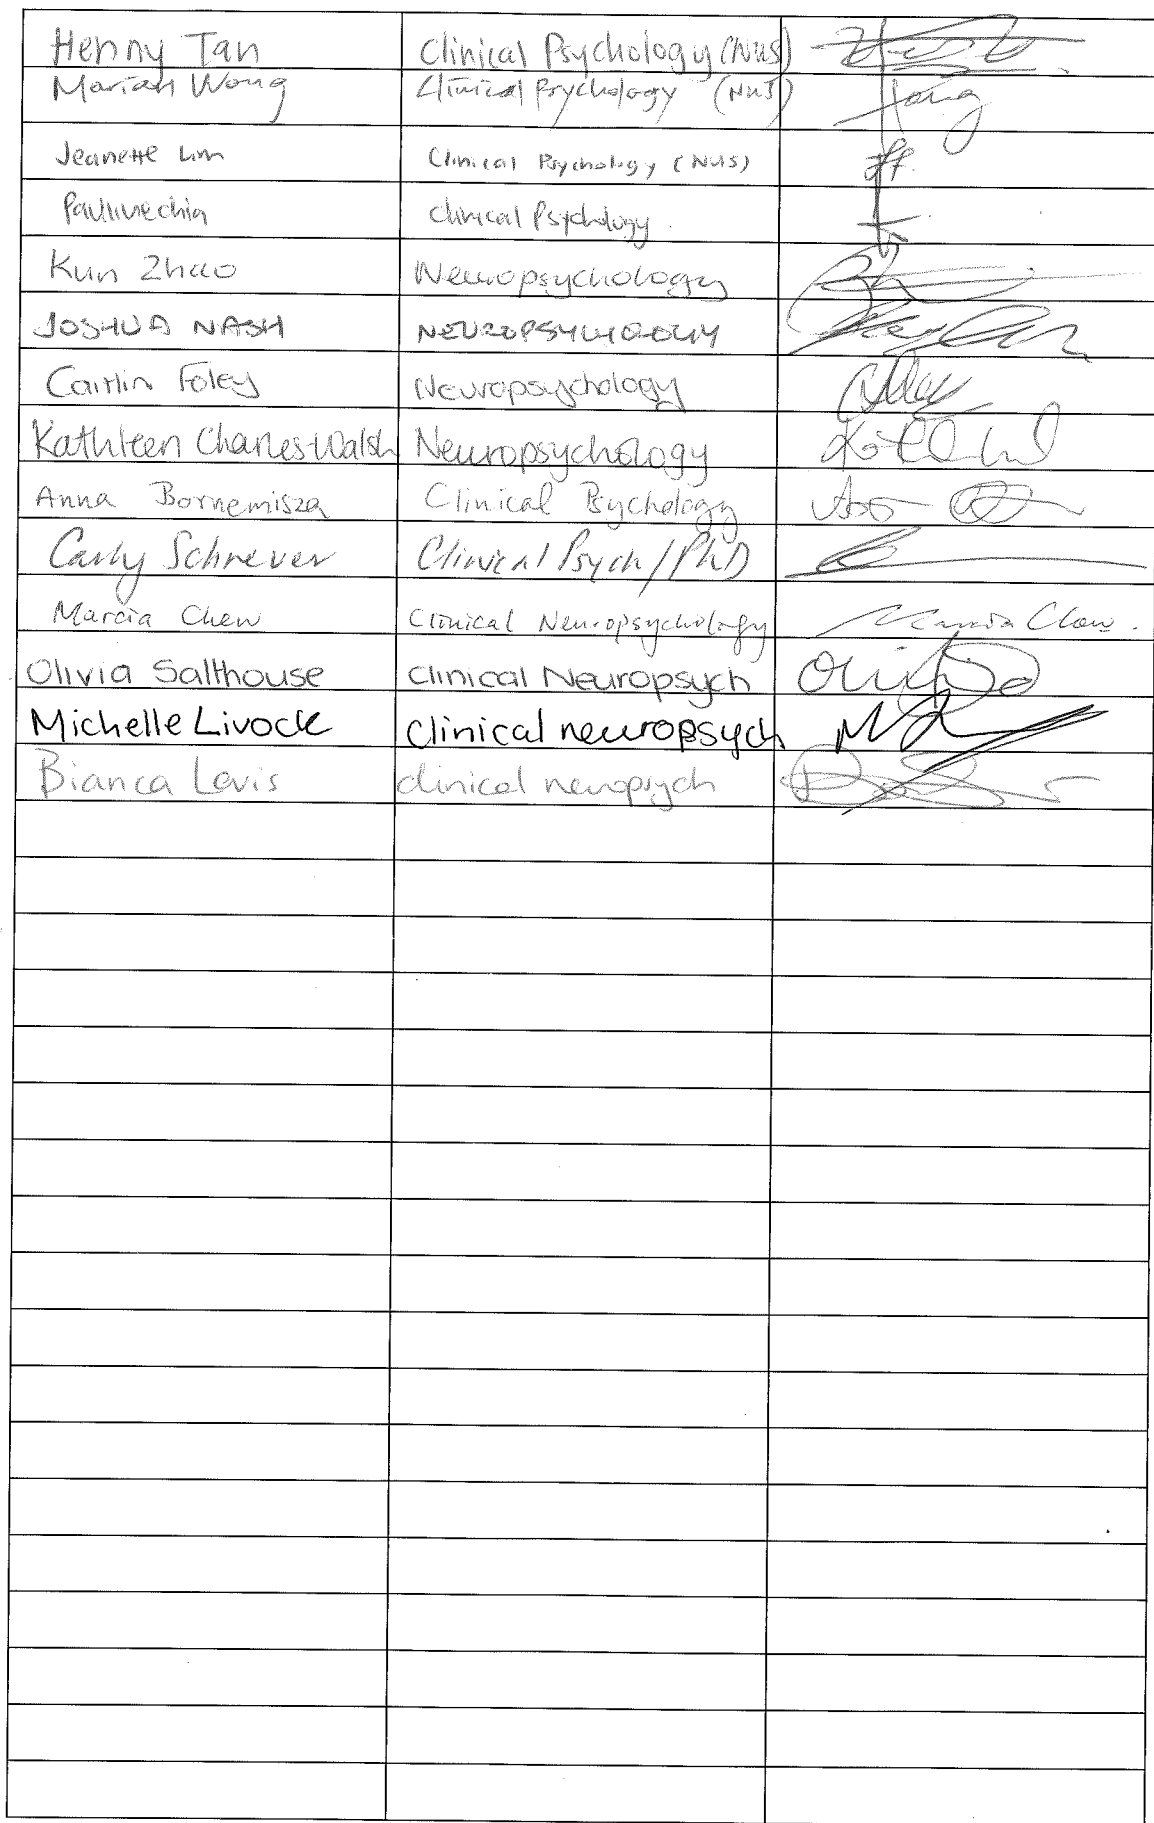 Henny Tan Clinical Psychology (NUS)
Mariah Wong Clinical Psychology (NUS)
Jeanette Lim Clinical Psychology (NUS)
Pauline Chia Clinical Psychology
Kun Zhao Neuropsychology
JOSHUA NASH NEUROPSYCHOLOGY
Caitlin Foley Neuropsychology
Kathleen Charles-Walsh Neuropsychology
Anna Bornemisza Clinical Psychology
Carly Schrever Clinical Psych/PhD
Marcia Chew Clinical Neuropsychology Marcia Chew.
Olivia Salthouse Clinical Neuropsych
Michelle Livock clinical neuropsych
Bianca Lavis clinical neuropsych